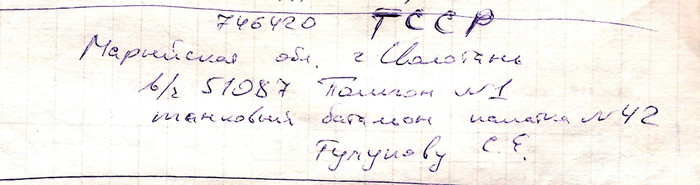 746420 ТССР
Марыйская обл. г Иолотань
в/ч 51087 Полигон №1
танковый батальон палатка №42
С.Е.